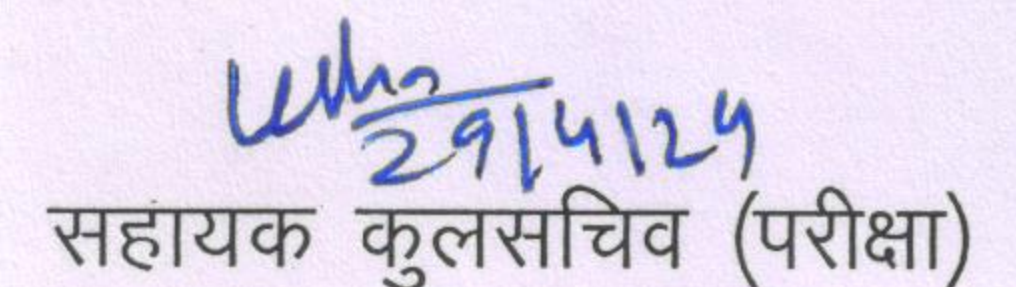 29/4/24
सहायक कुलसचिव (परीक्षा)